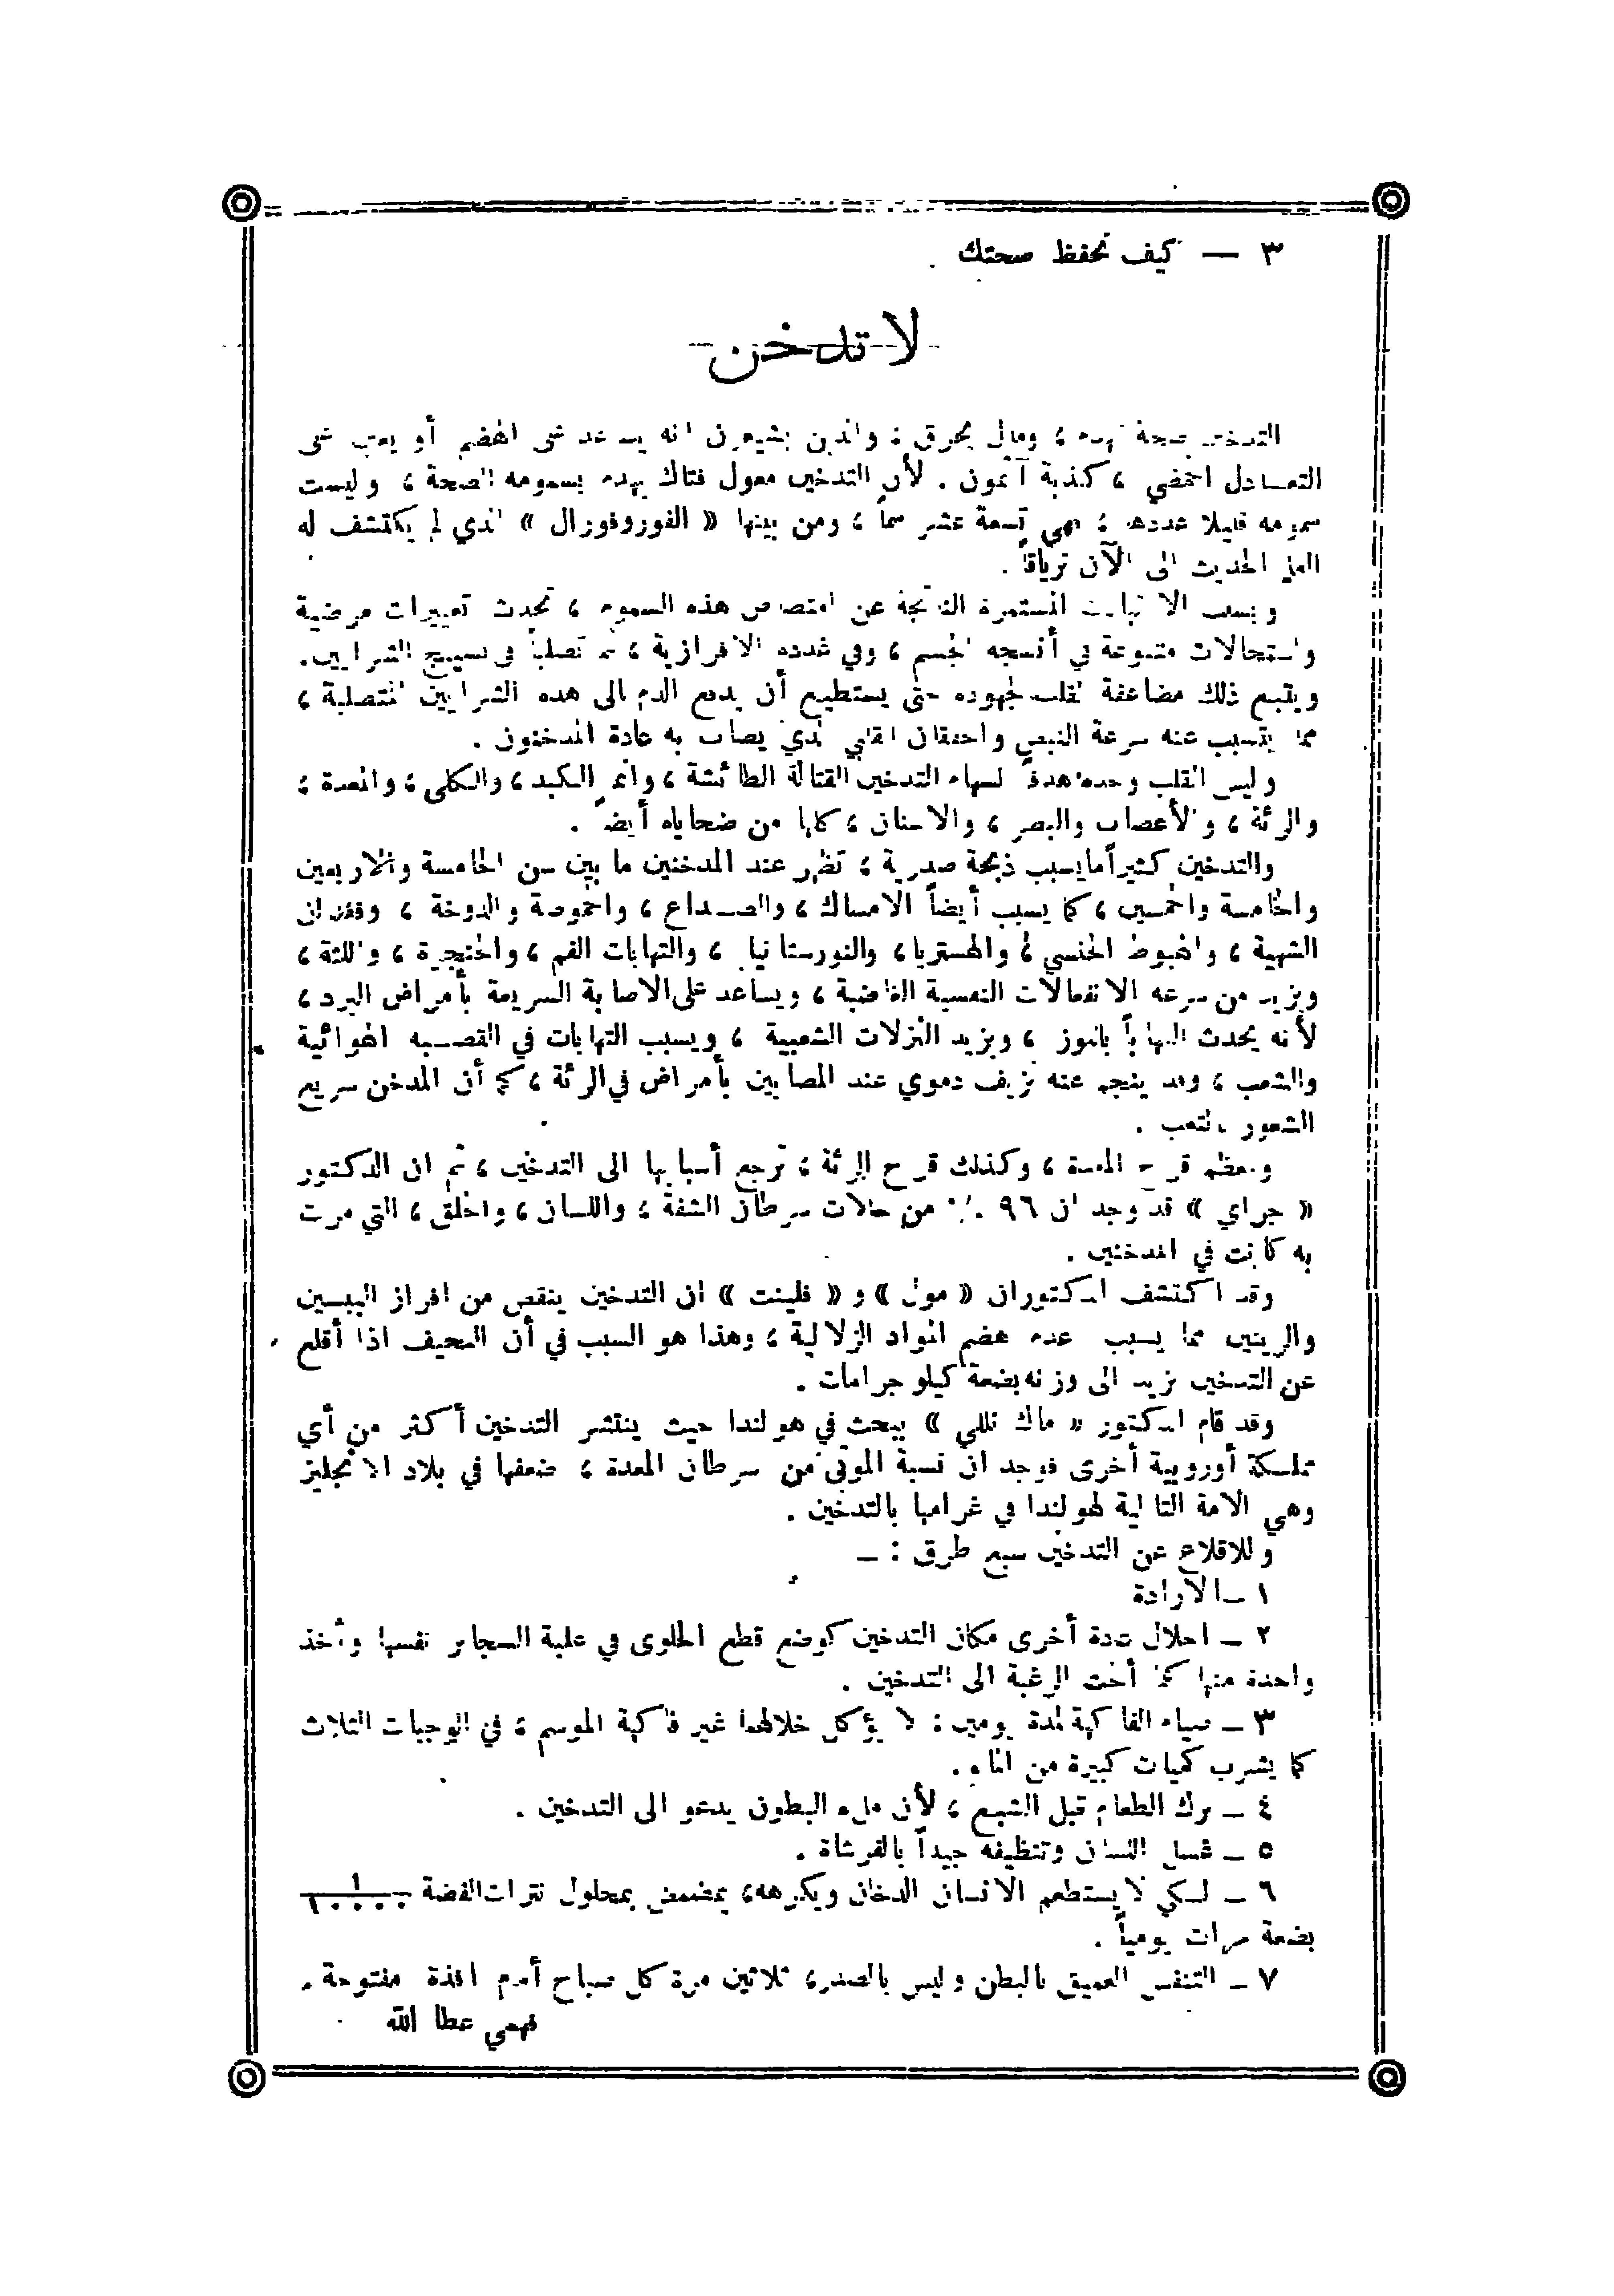 ٣ — كيف تحفظ صحتك
لا تدخن
التدخين صحة تهدم ، ومال يحرق ؛ والذين يشيعون انه يساعد على الهضم أو يعمل على
التعادل الحمضي ، كذبة آثمون . لأن التدخين معول فتاك يهدم بسمومه الصحة ، وليست
سمومه قليلا عددها ؛ فهي تسعة عشر سماً ، ومن بينها « الفوروفورال » الذي لم يكتشف له
العلم الحديث الى الآن ترياقاً .
وبسبب الالتهابات المستمرة الناتجة عن امتصاص هذه السموم ، تحدث تغييرات مرضية
واستحالات متنوعة في أنسجة الجسم ، وفي غدده الافرازية ، ثم تصلباً في نسيج الشرايين.
ويتبع ذلك مضاعفة القلب لمجهوده حتى يستطيع أن يدفع الدم الى هذه الشرايين المتصلبة ،
مما يتسبب عنه سرعة النبض واحتقان القلب الذي يصاب به عادة المدخنون .
وليس القلب وحده هدفاً لسهام التدخين القتالة الطائشة ، وانما الكبد ، والكلى ، والمعدة ،
والرئة ، والأعصاب والبصر ، والاسنان ، كلها من ضحاياه أيضاً .
والتدخين كثيراً ما يسبب ذبحة صدرية ، تظهر عند المدخنين ما بين سن الخامسة والاربعين
والخامسة والخمسين ، كما يسبب أيضاً الامساك ، والصداع ، والحموضة والدوخة ، وفقدان
الشهية ، والهبوط الجنسي ، والهستريا ، والنورستانيا ، والتهابات الفم ، والحنجرة ، واللثة ،
ويزيد من سرعة الانفعالات النفسية الغاضبة ، ويساعد على الاصابة السريعة بأمراض البرد ،
لأنه يحدث التهاباً باللوز ، ويزيد النزلات الشعبية ، ويسبب التهابات في القصبة الهوائية
والشعب ، وقد ينجم عنه نزيف دموي عند المصابين بأمراض في الرئة ، كما أن المدخن سريع
الشعور بالتعب .
ومعظم قرح المعدة ، وكذلك قرح الرئة ، ترجع أسبابها الى التدخين ، ثم ان الدكتور
« جراي » قد وجد ان ٩٦ ٪ من حالات سرطان الشفة ، واللسان ، والحلق ، التي مرت
به كانت في المدخنين .
وقد اكتشف الدكتوران « مول » و « فلينت » ان التدخين ينقص من افراز الببسين
والرينين مما يسبب عدم هضم المواد الزلالية ، وهذا هو السبب في أن النحيف اذا أقلع
عن التدخين يزيد الى وزنه بضعة كيلو جرامات .
وقد قام الدكتور « ماك نللي » ببحث في هولندا حيث ينتشر التدخين أكثر من أي
مملكة أوروبية أخرى فوجد ان نسبة الموتى من سرطان المعدة ، ضعفها في بلاد الانجليز
وهي الامة التالية لهولندا في غرامها بالتدخين .
وللاقلاع عن التدخين سبع طرق : —
١ — الارادة
٢ — احلال عادة أخرى مكان التدخين كوضع قطع الحلوى في علبة السجاير نفسها وأخذ
واحدة منها كلما ألحت الرغبة الى التدخين .
٣ — صيام الفاكهة لمدة يومين ؛ لا يؤكل خلالهما غير فاكهة الموسم ، في الوجبات الثلاث
كما يشرب كميات كبيرة من الماء .
٤ — ترك الطعام قبل الشبع ، لأن ملء البطون يدعو الى التدخين .
٥ — غسل اللسان وتنظيفه جيداً بالفرشاة .
٦ — لكي لا يستطعم الانسان الدخان ويكرهه ، يمضمض بمحلول نترات الفضة
بضعة مرات يومياً .
٧ — التنفس العميق بالبطن وليس بالصدر ، ثلاثين مرة كل صباح أمام نافذة مفتوحة .
فهمي عطا الله